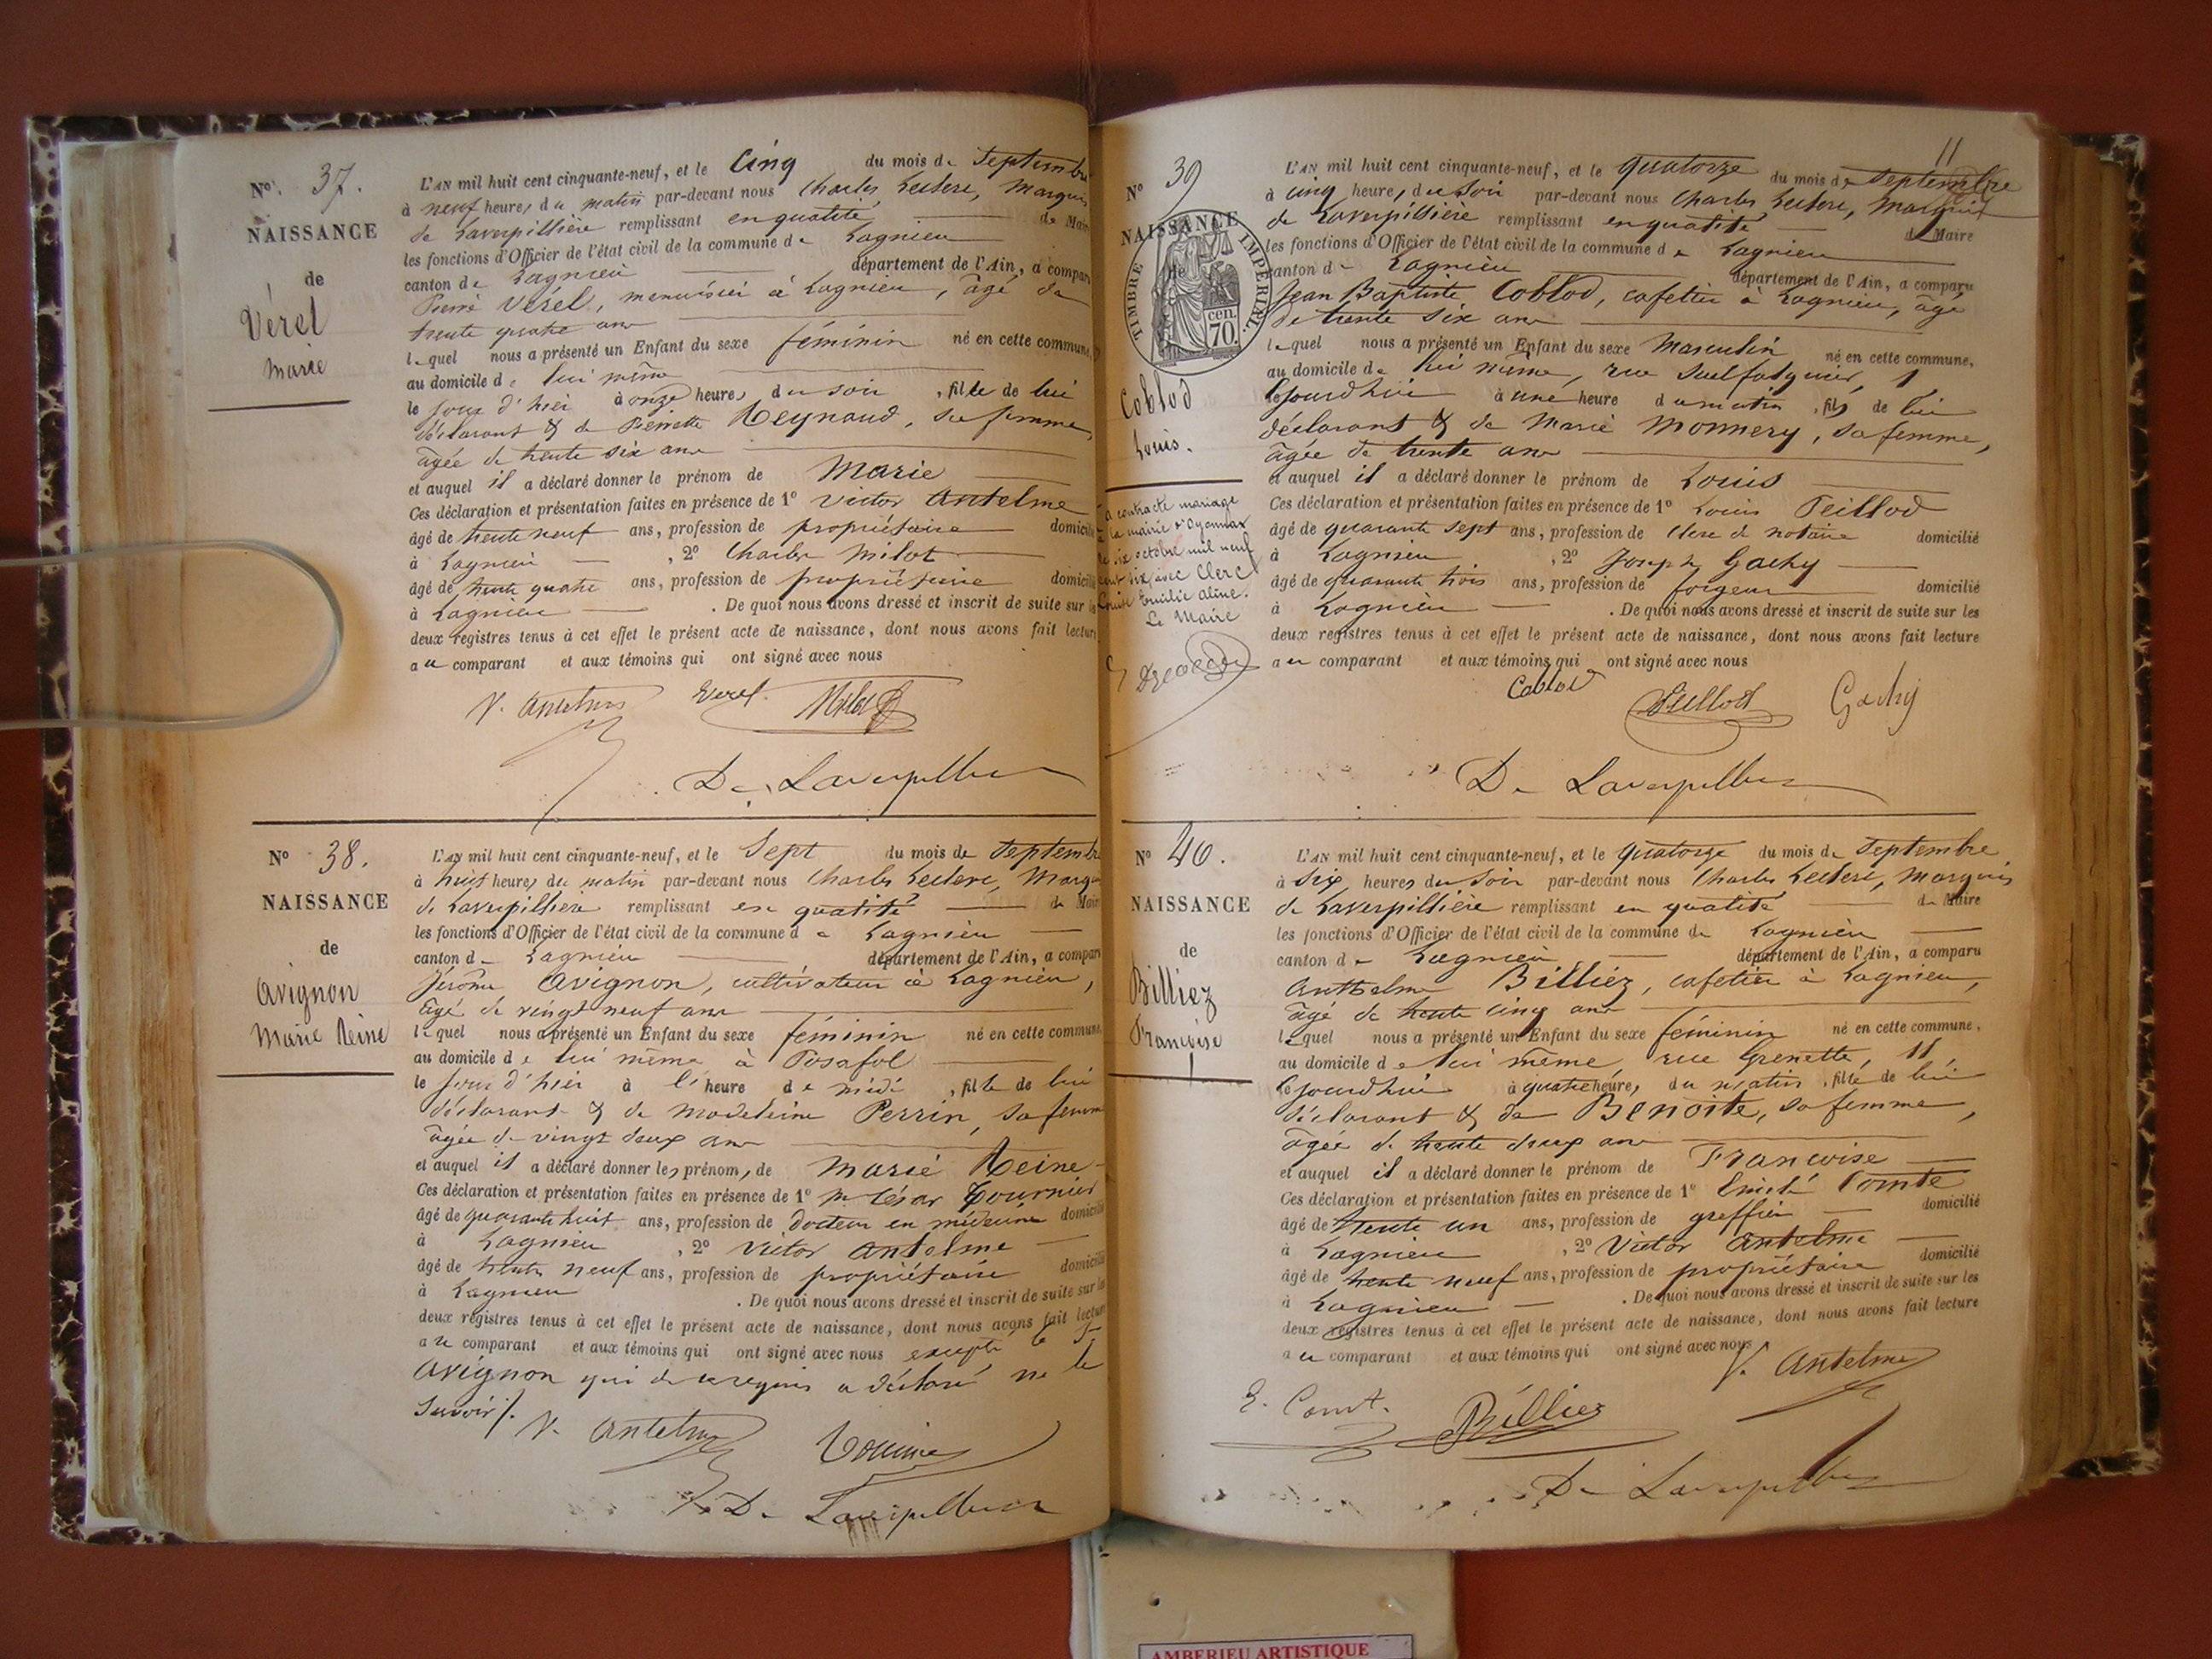 N° 37.
NAISSANCE
de
Vérel
Marie
L'AN mil huit cent cinquante-neuf, et le Cinq du mois de Septembre
à neuf heures du matin par-devant nous Charles Leclerc, Marquis
de Laverpillière remplissant en qualité de Maire
les fonctions d'Officier de l'état civil de la commune de Lagnieu
canton de Lagnieu département de l'Ain, a comparu
Pierre Vérel, menuisier à Lagnieu, âgé de
trente quatre ans
lequel nous a présenté un Enfant du sexe féminin né en cette commune,
au domicile de lui même
le jour d'hier à onze heures du soir, fille de lui
déclarant & de Pierrette Reynaud, sa femme,
âgée de trente six ans
et auquel il a déclaré donner le prénom de Marie
Ces déclaration et présentation faites en présence de 1° Victor Antelme
âgé de trente neuf ans, profession de propriétaire domicilié
à Lagnieu, 2° Charles Milot
âgé de trente quatre ans, profession de propriétaire domicilié
à Lagnieu. De quoi nous avons dressé et inscrit de suite sur les
deux registres tenus à cet effet le présent acte de naissance, dont nous avons fait lecture
au comparant et aux témoins qui ont signé avec nous
V. Antelme Verel Milot
De Laverpillière
N° 38.
NAISSANCE
de
Avignon
Marie Reine
L'AN mil huit cent cinquante-neuf, et le Sept du mois de Septembre
à huit heures du matin par-devant nous Charles Leclerc, Marquis
de Laverpilliere remplissant en qualité de Maire
les fonctions d'Officier de l'état civil de la commune de Lagnieu
canton de Lagnieu département de l'Ain, a comparu
Jérôme Avignon, cultivateur à Lagnieu,
âgé de vingt neuf ans
lequel nous a présenté un Enfant du sexe féminin né en cette commune,
au domicile de lui même à Posafol
le jour d'hier à l' heure de midi, fille de lui
déclarant & de Madeleine Perrin, sa femme
âgée de vingt deux ans
et auquel il a déclaré donner les prénoms de Marie Reine
Ces déclaration et présentation faites en présence de 1° Mr César Tournier
âgé de quarante huit ans, profession de docteur en médecine domicilié
à Lagnieu, 2° Victor Antelme
âgé de trente neuf ans, profession de propriétaire domicilié
à Lagnieu. De quoi nous avons dressé et inscrit de suite sur les
deux registres tenus à cet effet le présent acte de naissance, dont nous avons fait lecture
au comparant et aux témoins qui ont signé avec nous excepté le Sr
Avignon qui de ce requis a déclaré ne le
savoir /.
V. Antelme Tournier
De Laverpillière
11
N° 39
NAISSANCE
de
TIMBRE IMPÉRIAL.
70. cen.
Coblod
Louis.
a contracté mariage
à la mairie d'Oyonnax
le six octobre mil neuf
cent six avec Clerc
Louise Emilie Aline.
Le Maire
L'AN mil huit cent cinquante-neuf, et le quatorze du mois de Septembre
à cinq heures du soir par-devant nous Charles Leclerc, Marquis
de Laverpillière remplissant en qualité de Maire
les fonctions d'Officier de l'état civil de la commune de Lagnieu
canton de Lagnieu département de l'Ain, a comparu
Jean Baptiste Coblod, cafetier à Lagnieu, âgé
de trente six ans
lequel nous a présenté un Enfant du sexe Masculin né en cette commune,
au domicile de lui même, rue 1
Cejourdhui à une heure du matin, fils de lui
déclarant & de Marie Monnery, sa femme,
âgée de trente ans
et auquel il a déclaré donner le prénom de Louis
Ces déclaration et présentation faites en présence de 1° Louis Peillod
âgé de quarante sept ans, profession de Clerc de notaire domicilié
à Lagnieu, 2° Joseph Gachy
âgé de quarante trois ans, profession de forgeur domicilié
à Lagnieu. De quoi nous avons dressé et inscrit de suite sur les
deux registres tenus à cet effet le présent acte de naissance, dont nous avons fait lecture
au comparant et aux témoins qui ont signé avec nous
Coblod Peillod Gachy
De Laverpillière
N° 40.
NAISSANCE
de
Billiez
Françoise
L'AN mil huit cent cinquante-neuf, et le quatorze du mois de Septembre
à six heures du soir par-devant nous Charles Leclerc, Marquis
de Laverpillière remplissant en qualité de Maire
les fonctions d'Officier de l'état civil de la commune de Lagnieu
canton de Lagnieu département de l'Ain, a comparu
Anthelme Billiez, cafetier à Lagnieu,
âgé de trente cinq ans
lequel nous a présenté un Enfant du sexe féminin né en cette commune,
au domicile de lui même rue Grenette, 11
Cejourdhui à quatre heures du matin, fille de lui
déclarant & de Benoite, sa femme,
âgée de trente deux ans
et auquel il a déclaré donner le prénom de Françoise
Ces déclaration et présentation faites en présence de 1° Comte
âgé de trente un ans, profession de greffier domicilié
à Lagnieu, 2° Victor Antelme
âgé de trente neuf ans, profession de propriétaire domicilié
à Lagnieu. De quoi nous avons dressé et inscrit de suite sur les
deux registres tenus à cet effet le présent acte de naissance, dont nous avons fait lecture
au comparant et aux témoins qui ont signé avec nous
V. Antelme
E. Comte. Billiez
De Laverpillière
AMBERIEU ARTISTIQUE